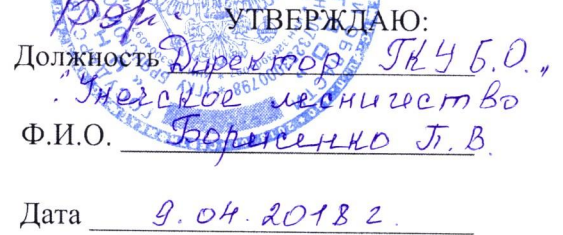 УТВЕРЖДАЮ:
Должность Директор ГКУ Б.О.
"Унечское лесничество
Ф.И.О. Борисенко П.В.
Дата 9.04.2018 г.